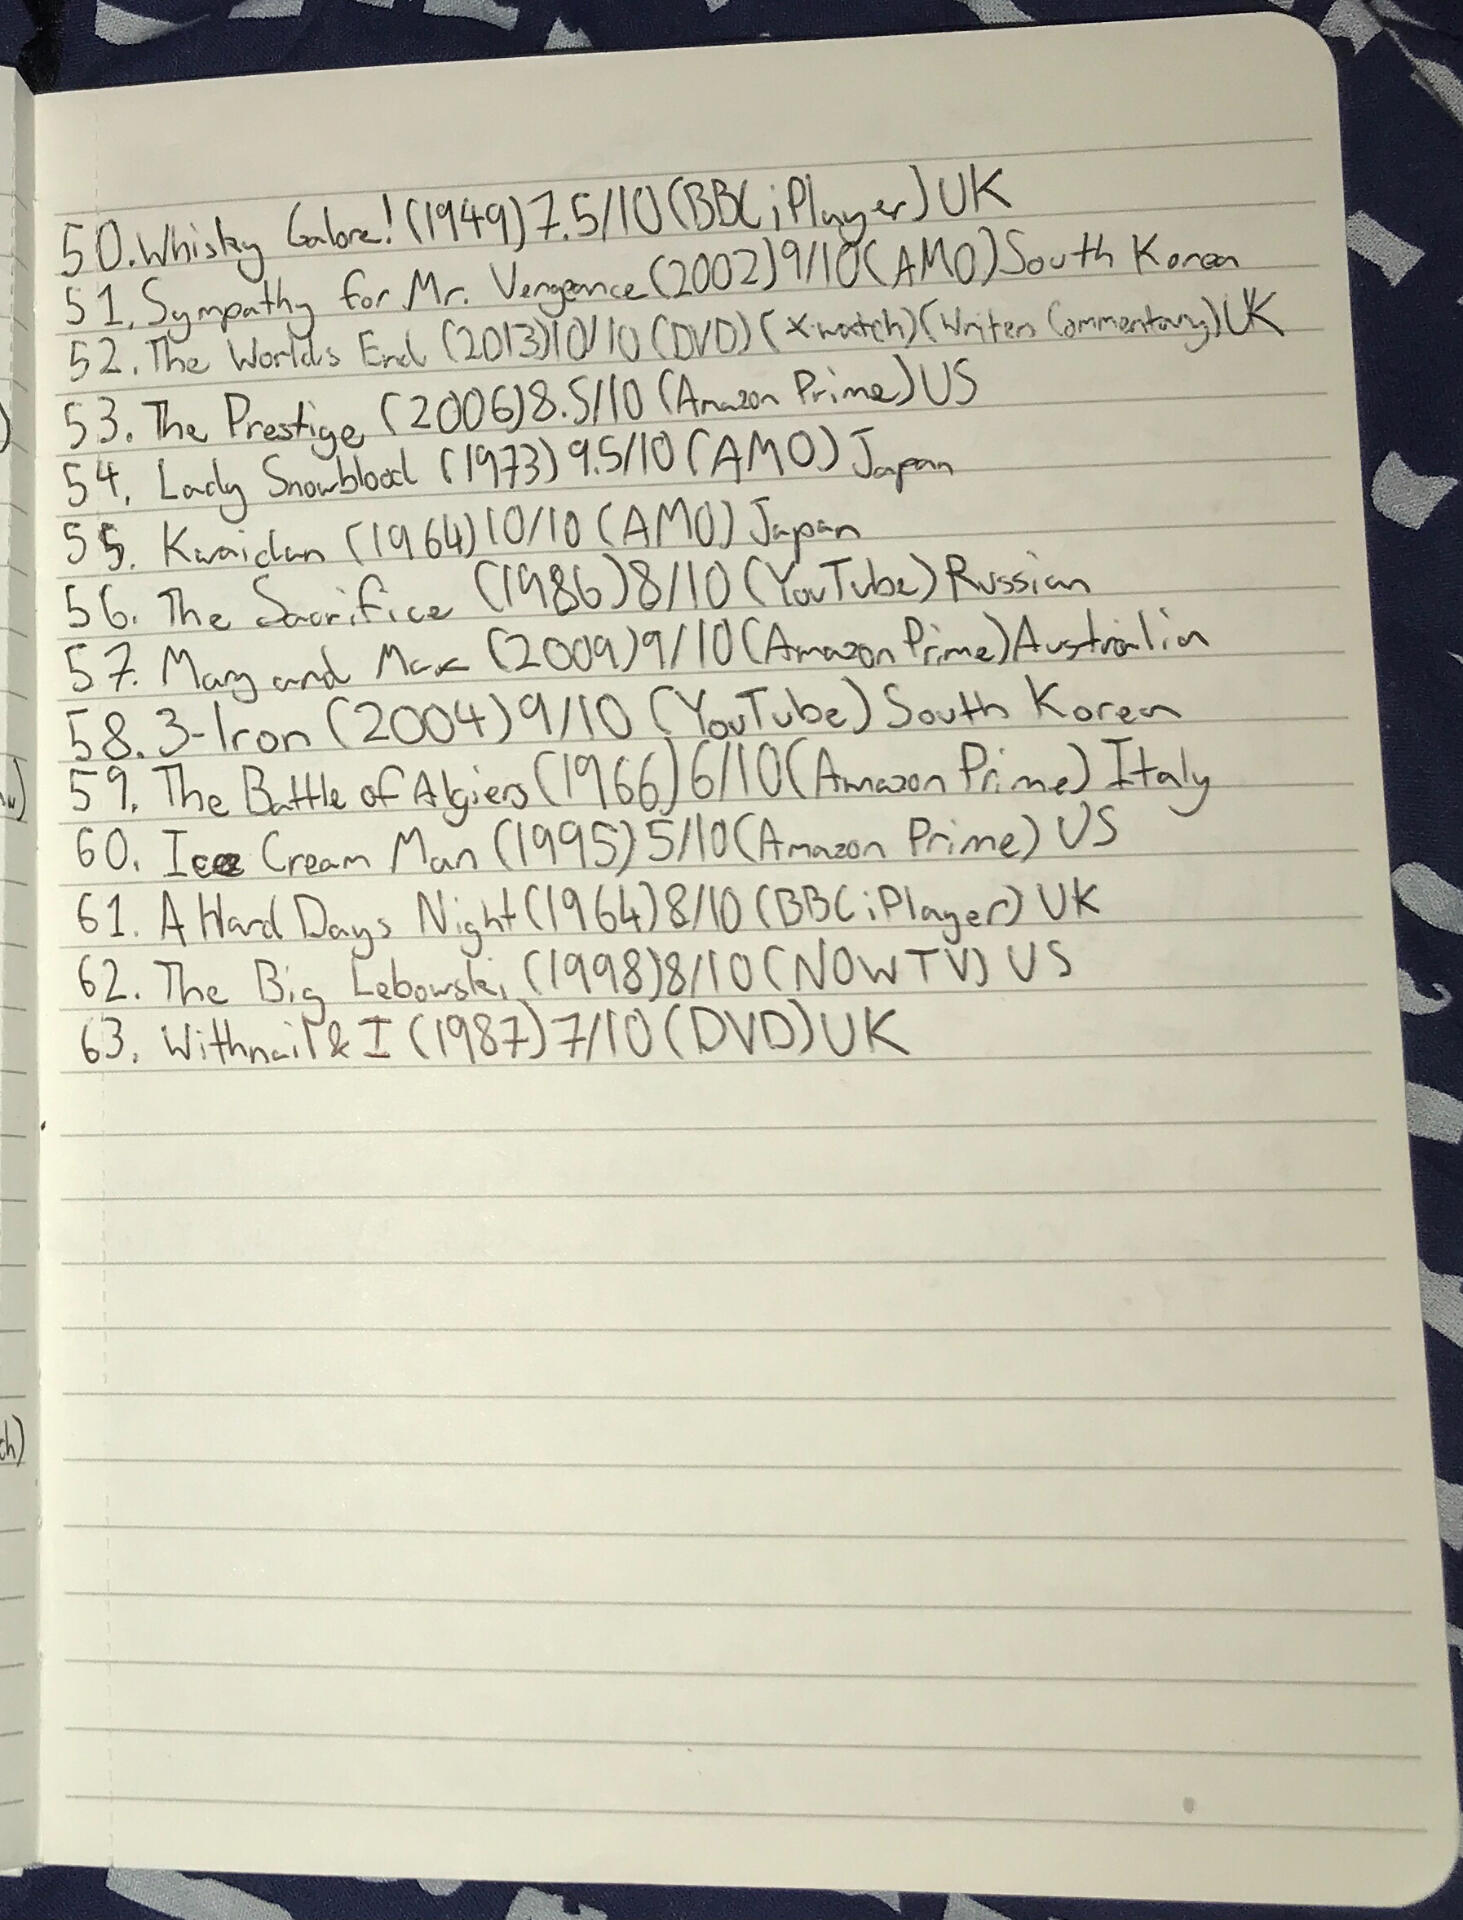 50. Whisky Galore! (1949) 7.5/10 (BBC iPlayer) UK
51. Sympathy for Mr. Vengeance (2002) 9/10 (AMO) South Korea
52. The Worlds End (2013) 10/10 (DVD) (X-watch) (Writers Commentary) UK
53. The Prestige (2006) 8.5/10 (Amazon Prime) US
54. Lady Snowblood (1973) 9.5/10 (AMO) Japan
55. Kwaidan (1964) 10/10 (AMO) Japan
56. The Sacrifice (1986) 8/10 (YouTube) Russian
57. Mary and Max (2009) 9/10 (Amazon Prime) Australia
58. 3-Iron (2004) 9/10 (YouTube) South Korea
59. The Battle of Algiers (1966) 6/10 (Amazon Prime) Italy
60. Ice Cream Man (1995) 5/10 (Amazon Prime) US
61. A Hard Days Night (1964) 8/10 (BBC iPlayer) UK
62. The Big Lebowski (1998) 8/10 (NOW TV) US
63. Withnail & I (1987) 7/10 (DVD) UK